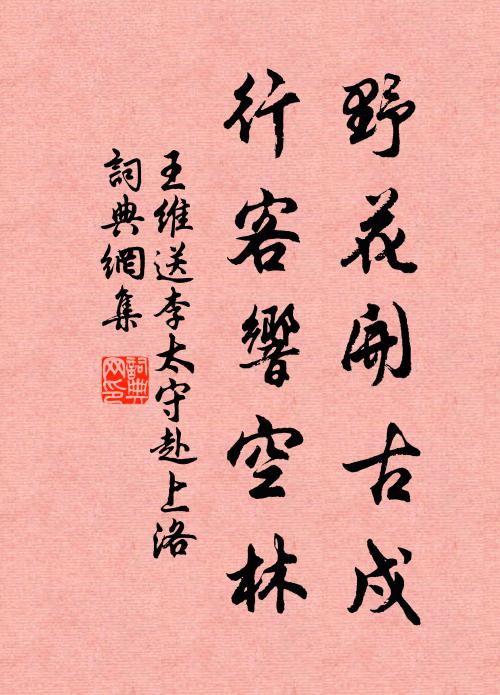 野花開古戍
行客響空林
王維送李太守赴上洛
詞典網集
詞典網印